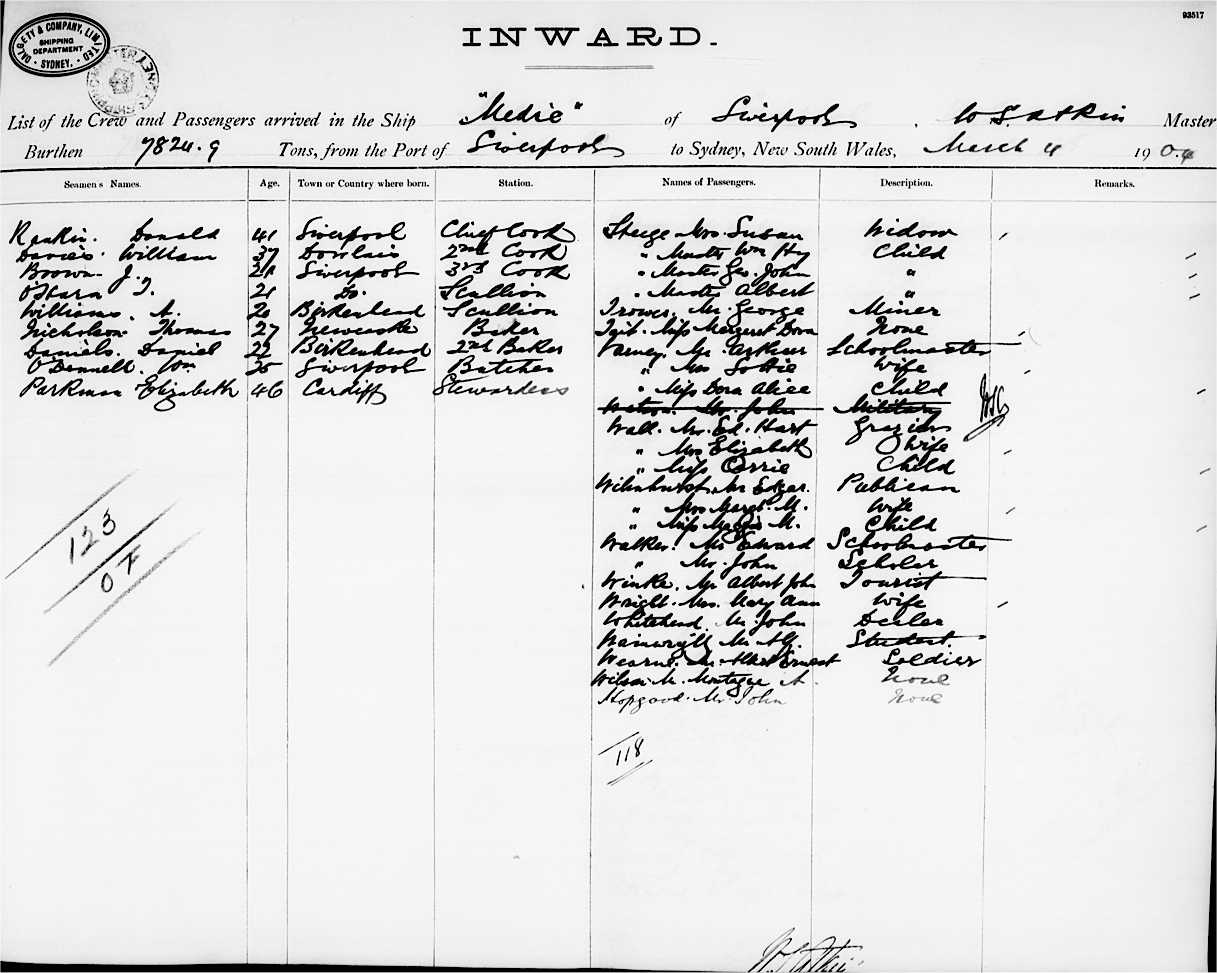 93517
DALGETY & COMPANY, LIMITED
SHIPPING DEPARTMENT
SYDNEY.
INWARD.
List of the Crew and Passengers arrived in the Ship "Medic" of Liverpool, W. S. Atkin Master
Burthen 7824.9 Tons, from the Port of Liverpool to Sydney, New South Wales, March 4 1904
Seamen's Names. Age. Town or Country where born. Station. Names of Passengers. Description. Remarks.
Rankin. Donald 41 Liverpool Chief Cook
Davies. William 37 Dowlais 2nd Cook
Brown J. 21 Liverpool 3rd Cook
O'Hara T. 21 Do. Scullion
Williams. A. 20 Birkenhead Scullion
Nicholson Thomas 27 Newcastle Baker
Daniels. Daniel 22 Birkenhead 2nd Baker
O'Donnell. Wm 25 Liverpool Butcher
Parkman Elizabeth 46 Cardiff Stewardess
123
OF
Mrs. Susan Widow
" Master Wm Hy Child
" Master Geo. John "
" Master Albert "
Trower. Mr. George Miner
Tait. Miss Margaret Dora None
Varney. Mr. Arthur Schoolmaster
" Mrs Lottie Wife
" Miss Dora Alice Child
Watson Mr. John Military
Wall. Mr. Ed. Hart Grazier
" Mrs Elizabeth Wife
" Miss Child
Wilmhurst Mr Edgar. Publican
" Mrs Margt. M. Wife
" Miss M. Child
Walker. Mr Edward Schoolmaster
" Mr. John Scholar
Winkle. Mr Albert John Tourist
Wright. Mrs. Mary Ann Wife
Whitehead. Mr. John Dealer
Wainwright Mr Alf. Student.
Wearne. Mr. Albert Ernest Soldier
Wilson M. Montague A. None
Hopgood. Mr. John None
118
W. S. Atkin